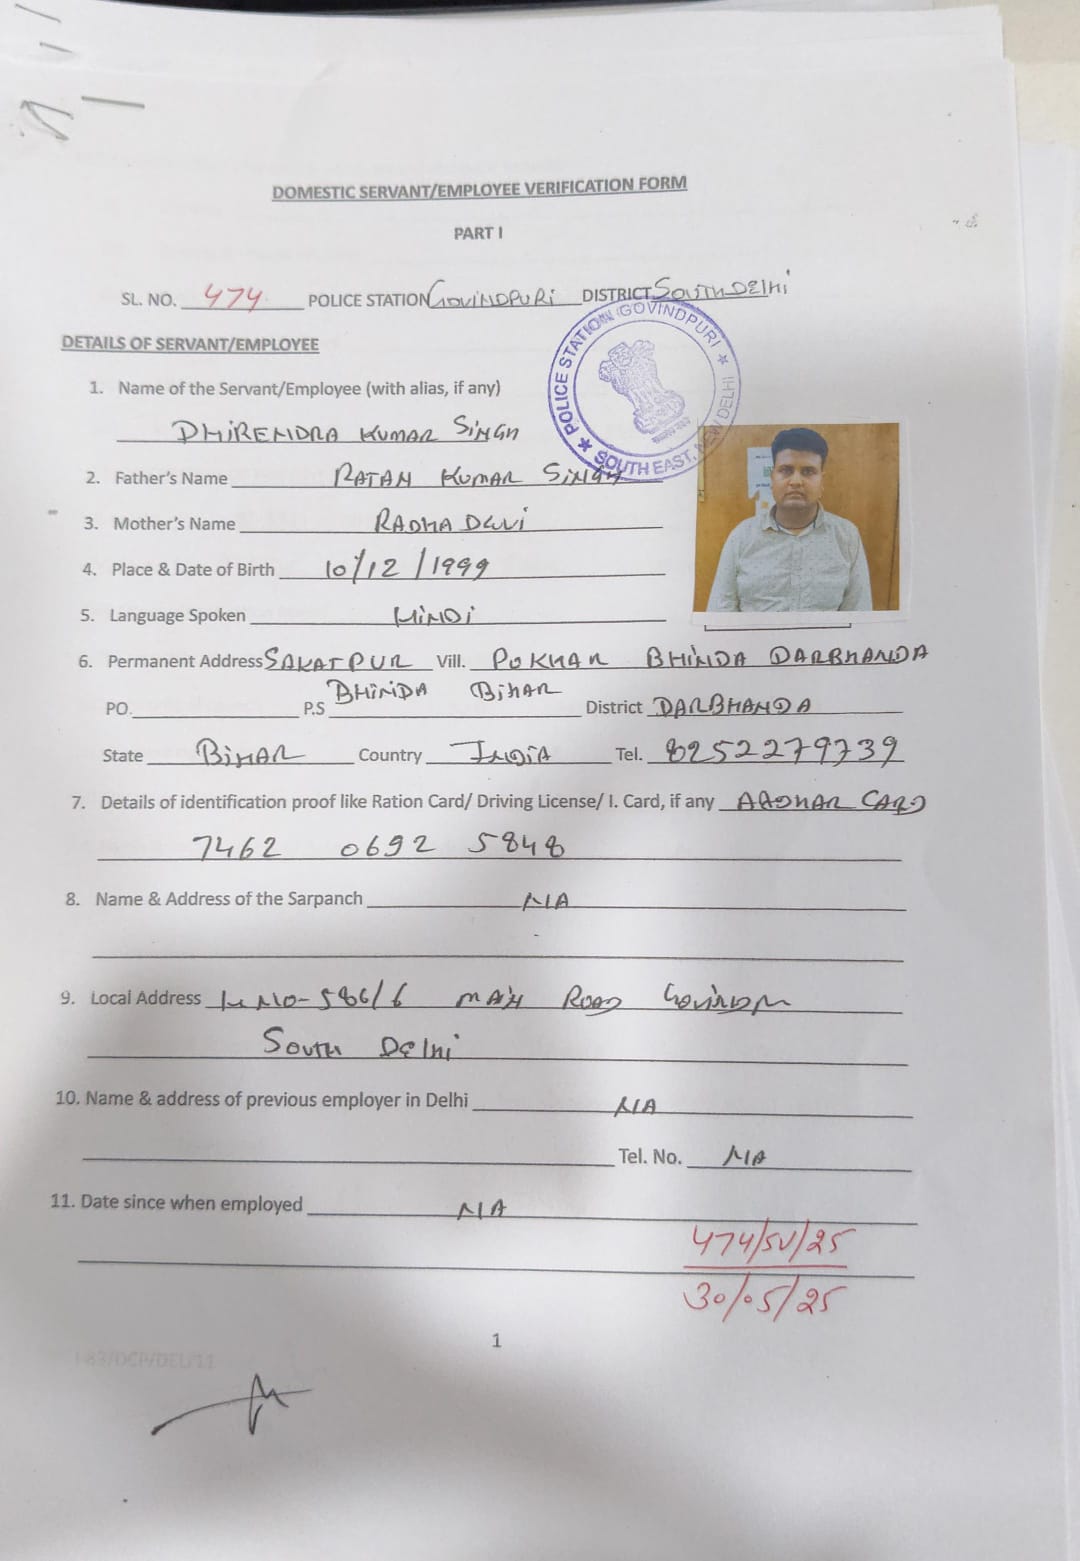 DOMESTIC SERVANT/EMPLOYEE VERIFICATION FORM
PART I
SL. NO. 474 POLICE STATION GOVINDPURI DISTRICT SOUTH DElHi
POLICE STATION GOVINDPURI ★ SOUTH EAST, NEW DELHI ★
DETAILS OF SERVANT/EMPLOYEE
1. Name of the Servant/Employee (with alias, if any)
DHIRENDRA KUMAR SINGH
2. Father's Name RATAN KUMAR SINGH
3. Mother's Name RADHA DEVI
4. Place & Date of Birth 10/12/1999
5. Language Spoken HINDI
6. Permanent Address SAKATPUR Vill. POKHAR BHINDA DARBHANDA
PO. P.S BHINDA BIHAR District DARBHANDA
State BIHAR Country INDIA Tel. 8252279739
7. Details of identification proof like Ration Card/ Driving License/ I. Card, if any AADHAR CARD
7462 0692 5848
8. Name & Address of the Sarpanch NIA
9. Local Address H NO-586/6 MAIN ROAD
SOUTH DElhi
10. Name & address of previous employer in Delhi NIA
Tel. No. NIA
11. Date since when employed NIA
474/SV/25
30/05/25
1